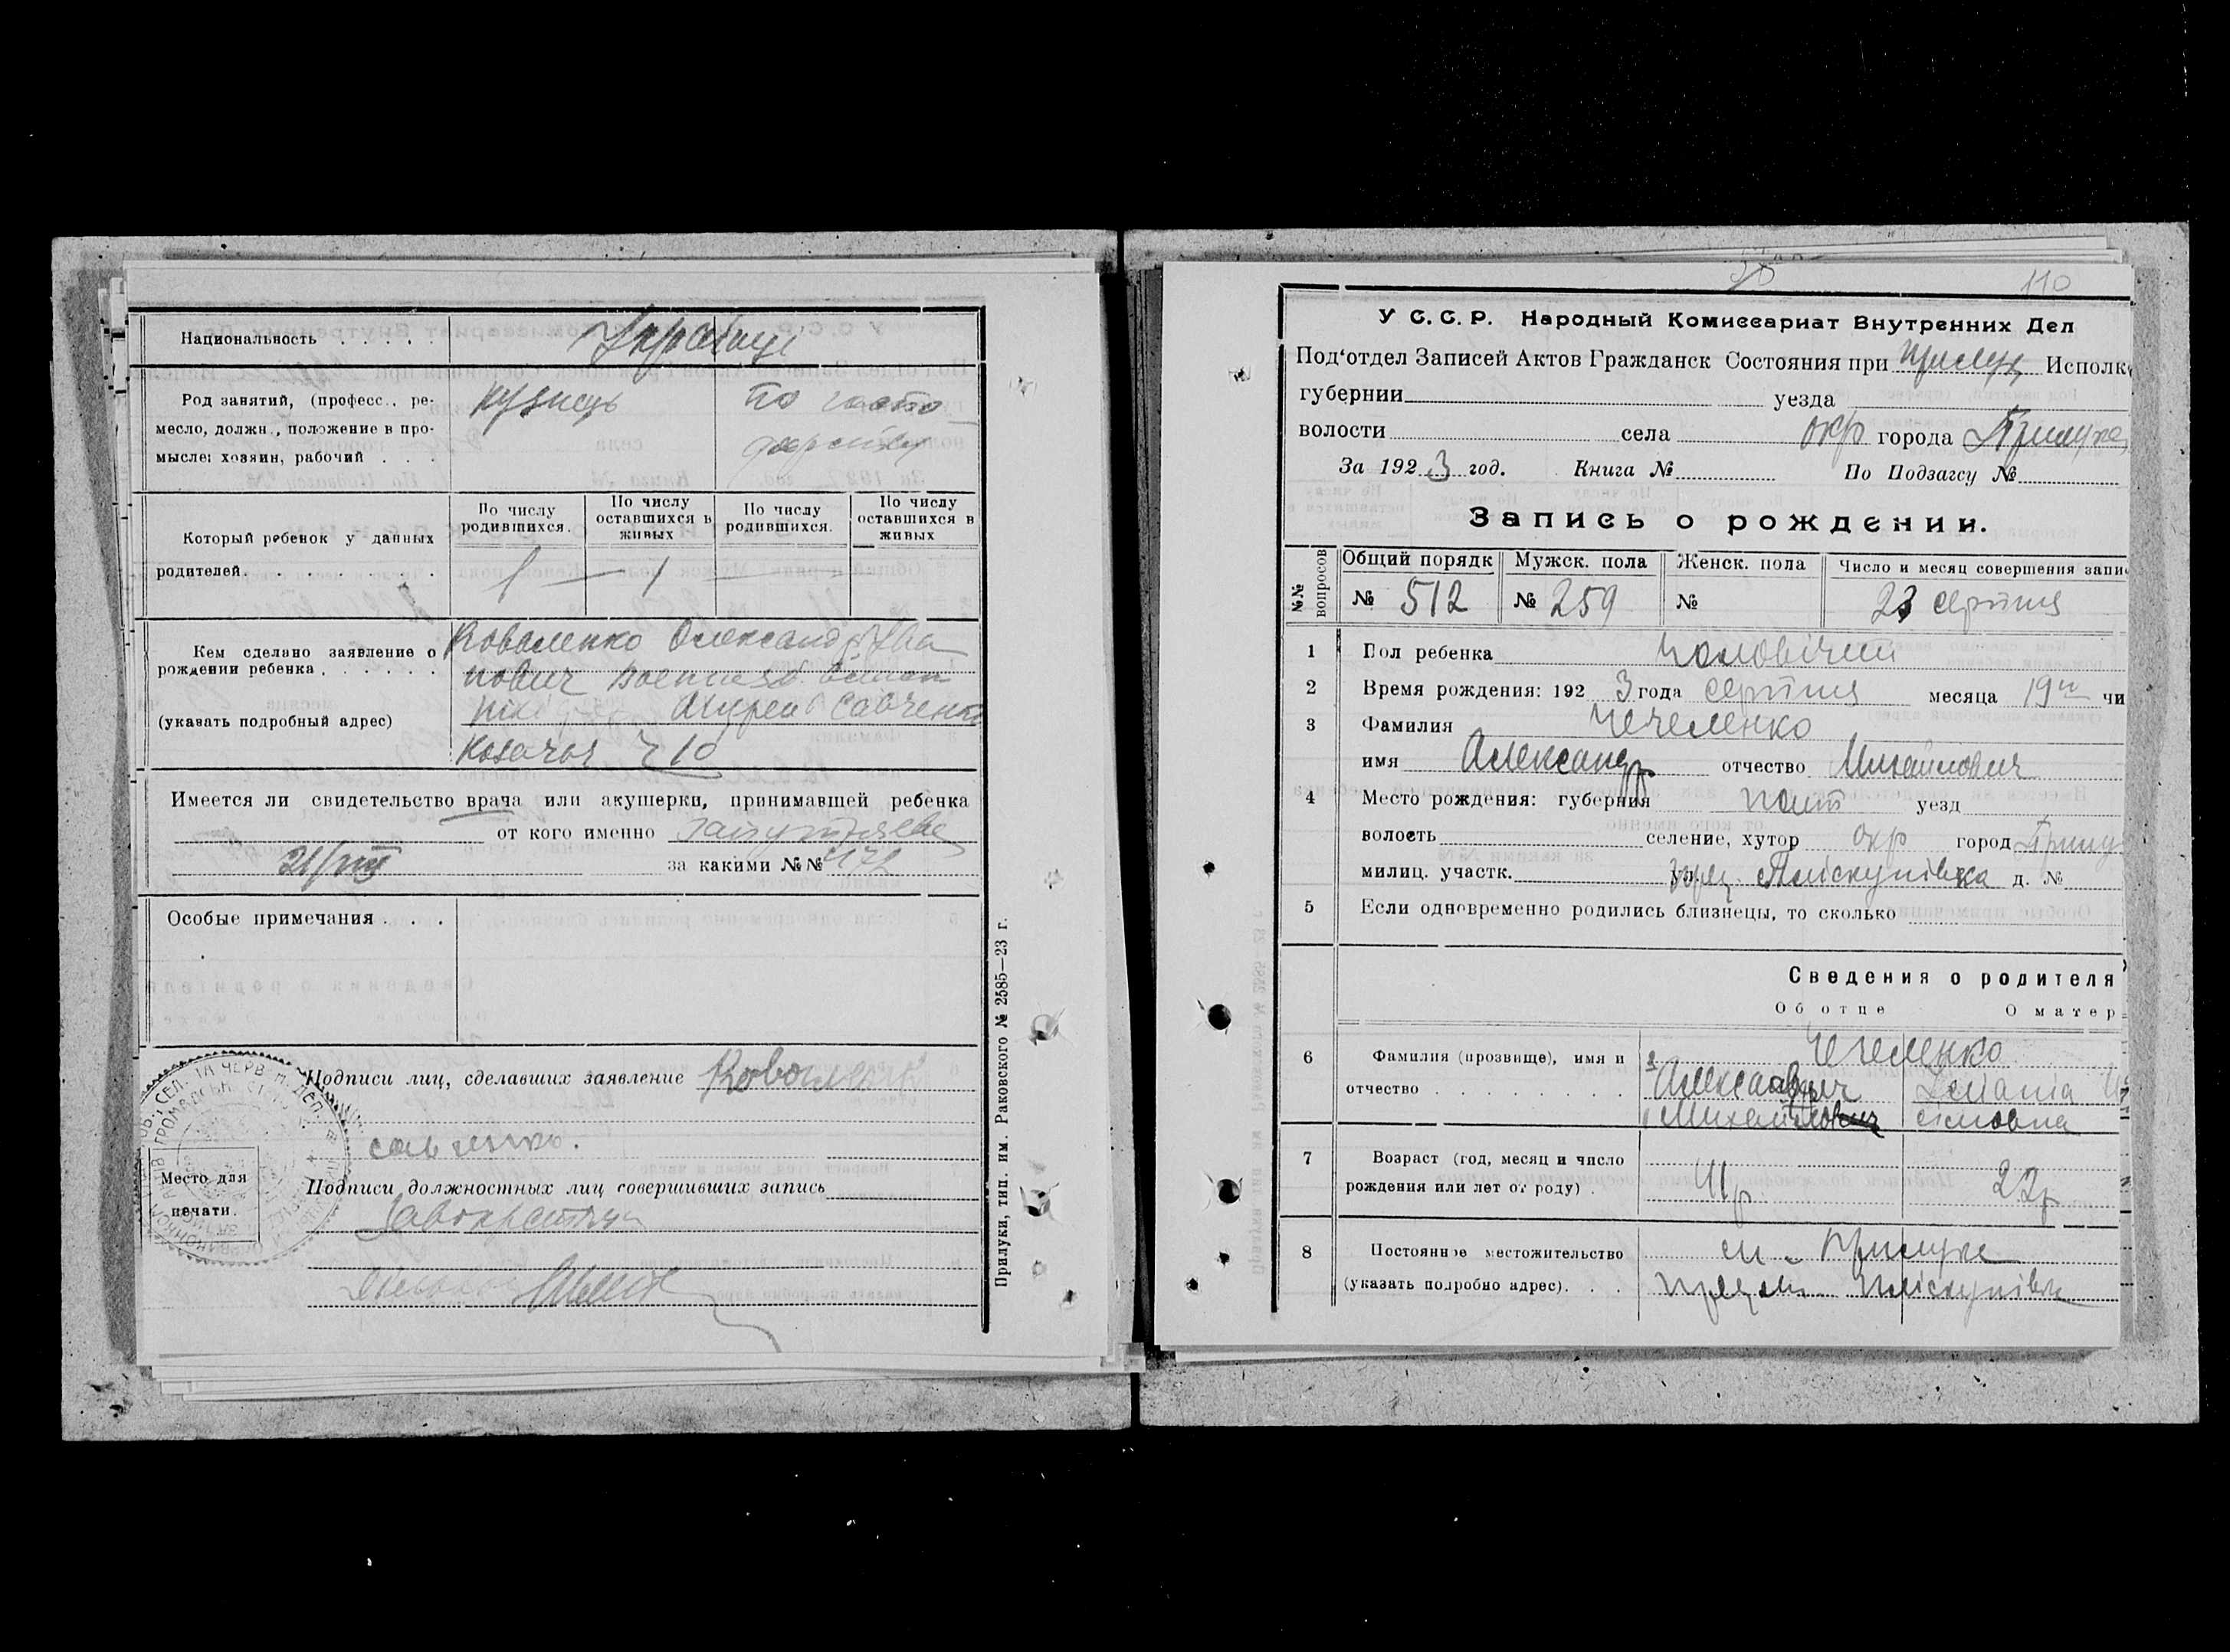 Национальность
Род занятий, (професс., ре-
месло, должн., положение в про-
мысле: хозяин, рабочий
кузнець
по госпо-
дарству
Который ребенок у данных
родителей
По числу родившихся.
По числу оставшихся в живых
По числу родившихся.
По числу оставшихся в живых
1 — 1
Кем сделано заявление о
рождении ребенка
(указать подробный адрес)
Коваленко Олександр Ива
нович
Андрей Савченко
Козача 10
Имеется ли свидетельство врача или акушерки, принимавшей ребенка
от кого именно
21/VIII за какими №№ 4172
Особые примечания
Подписи лиц, сделавших заявление Коваленко
савченко.
Место для
печати.
Подписи должностных лиц совершивших запись
Прилуки, тип. им. Раковского № 2585—23 г.
110
У С. С. Р. Народный Комиссариат Внутренних Дел
Под'отдел Записей Актов Гражданск Состояния при Прилуц Исполк
губернии уезда
волости села окр города Прилуки
За 1923 год. Книга № По Подзагсу №
Запись о рождении.
№№ вопросов
Общий порядк
Мужск. пола
Женск. пола
Число и месяц совершения запи
№ 512 № 259 № 23 серпня
1 Пол ребенка чоловічий
2 Время рождения: 1923 года серпня месяца 19го чи
3 Фамилия Чечеленко
имя Александр отчество Михайлович
4 Место рождения: губерния полт уезд
волость селение, хутор окр город Прилу
милиц. участк. ул. Плискунівка д. №
5 Если одновременно родились близнецы, то сколько
Сведения о родителя
Об отце О матер
6 Фамилия (прозвище), имя и
отчество
Чечеленко
2 Александрович
1 Михайло
7 Возраст (год, месяц и число
рождения или лет от роду) 22р
8 Постоянное местожительство м. Прилуки
(указать подробно адрес). Плискунівка